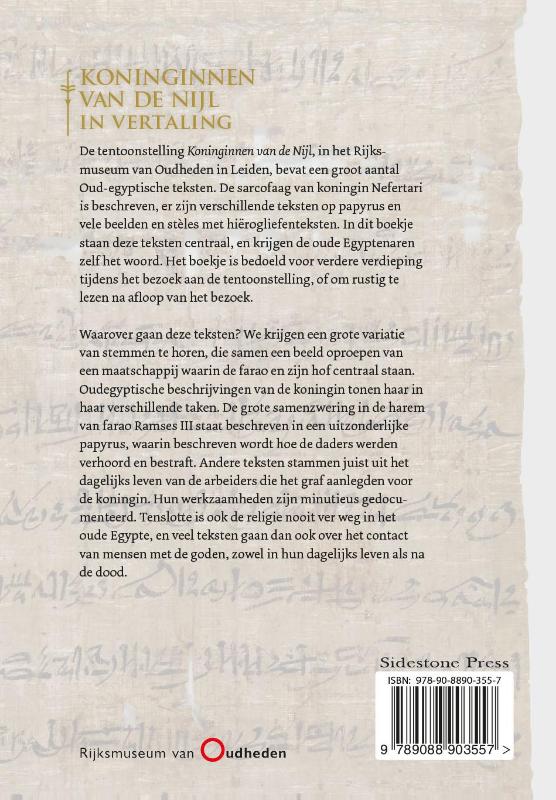 KONINGINNEN
VAN DE NIJL
IN VERTALING
De tentoonstelling Koninginnen van de Nijl, in het Rijks-
museum van Oudheden in Leiden, bevat een groot aantal
Oud-egyptische teksten. De sarcofaag van koningin Nefertari
is beschreven, er zijn verschillende teksten op papyrus en
vele beelden en stèles met hiërogliefenteksten. In dit boekje
staan deze teksten centraal, en krijgen de oude Egyptenaren
zelf het woord. Het boekje is bedoeld voor verdere verdieping
tijdens het bezoek aan de tentoonstelling, of om rustig te
lezen na afloop van het bezoek.
Waarover gaan deze teksten? We krijgen een grote variatie
van stemmen te horen, die samen een beeld oproepen van
een maatschappij waarin de farao en zijn hof centraal staan.
Oudegyptische beschrijvingen van de koningin tonen haar in
haar verschillende taken. De grote samenzwering in de harem
van farao Ramses III staat beschreven in een uitzonderlijke
papyrus, waarin beschreven wordt hoe de daders werden
verhoord en bestraft. Andere teksten stammen juist uit het
dagelijks leven van de arbeiders die het graf aanlegden voor
de koningin. Hun werkzaamheden zijn minutieus gedocu-
menteerd. Tenslotte is ook de religie nooit ver weg in het
oude Egypte, en veel teksten gaan dan ook over het contact
van mensen met de goden, zowel in hun dagelijks leven als na
de dood.
Sidestone Press
ISBN: 978-90-8890-355-7
9 789088 903557 >
Rijksmuseum van Oudheden